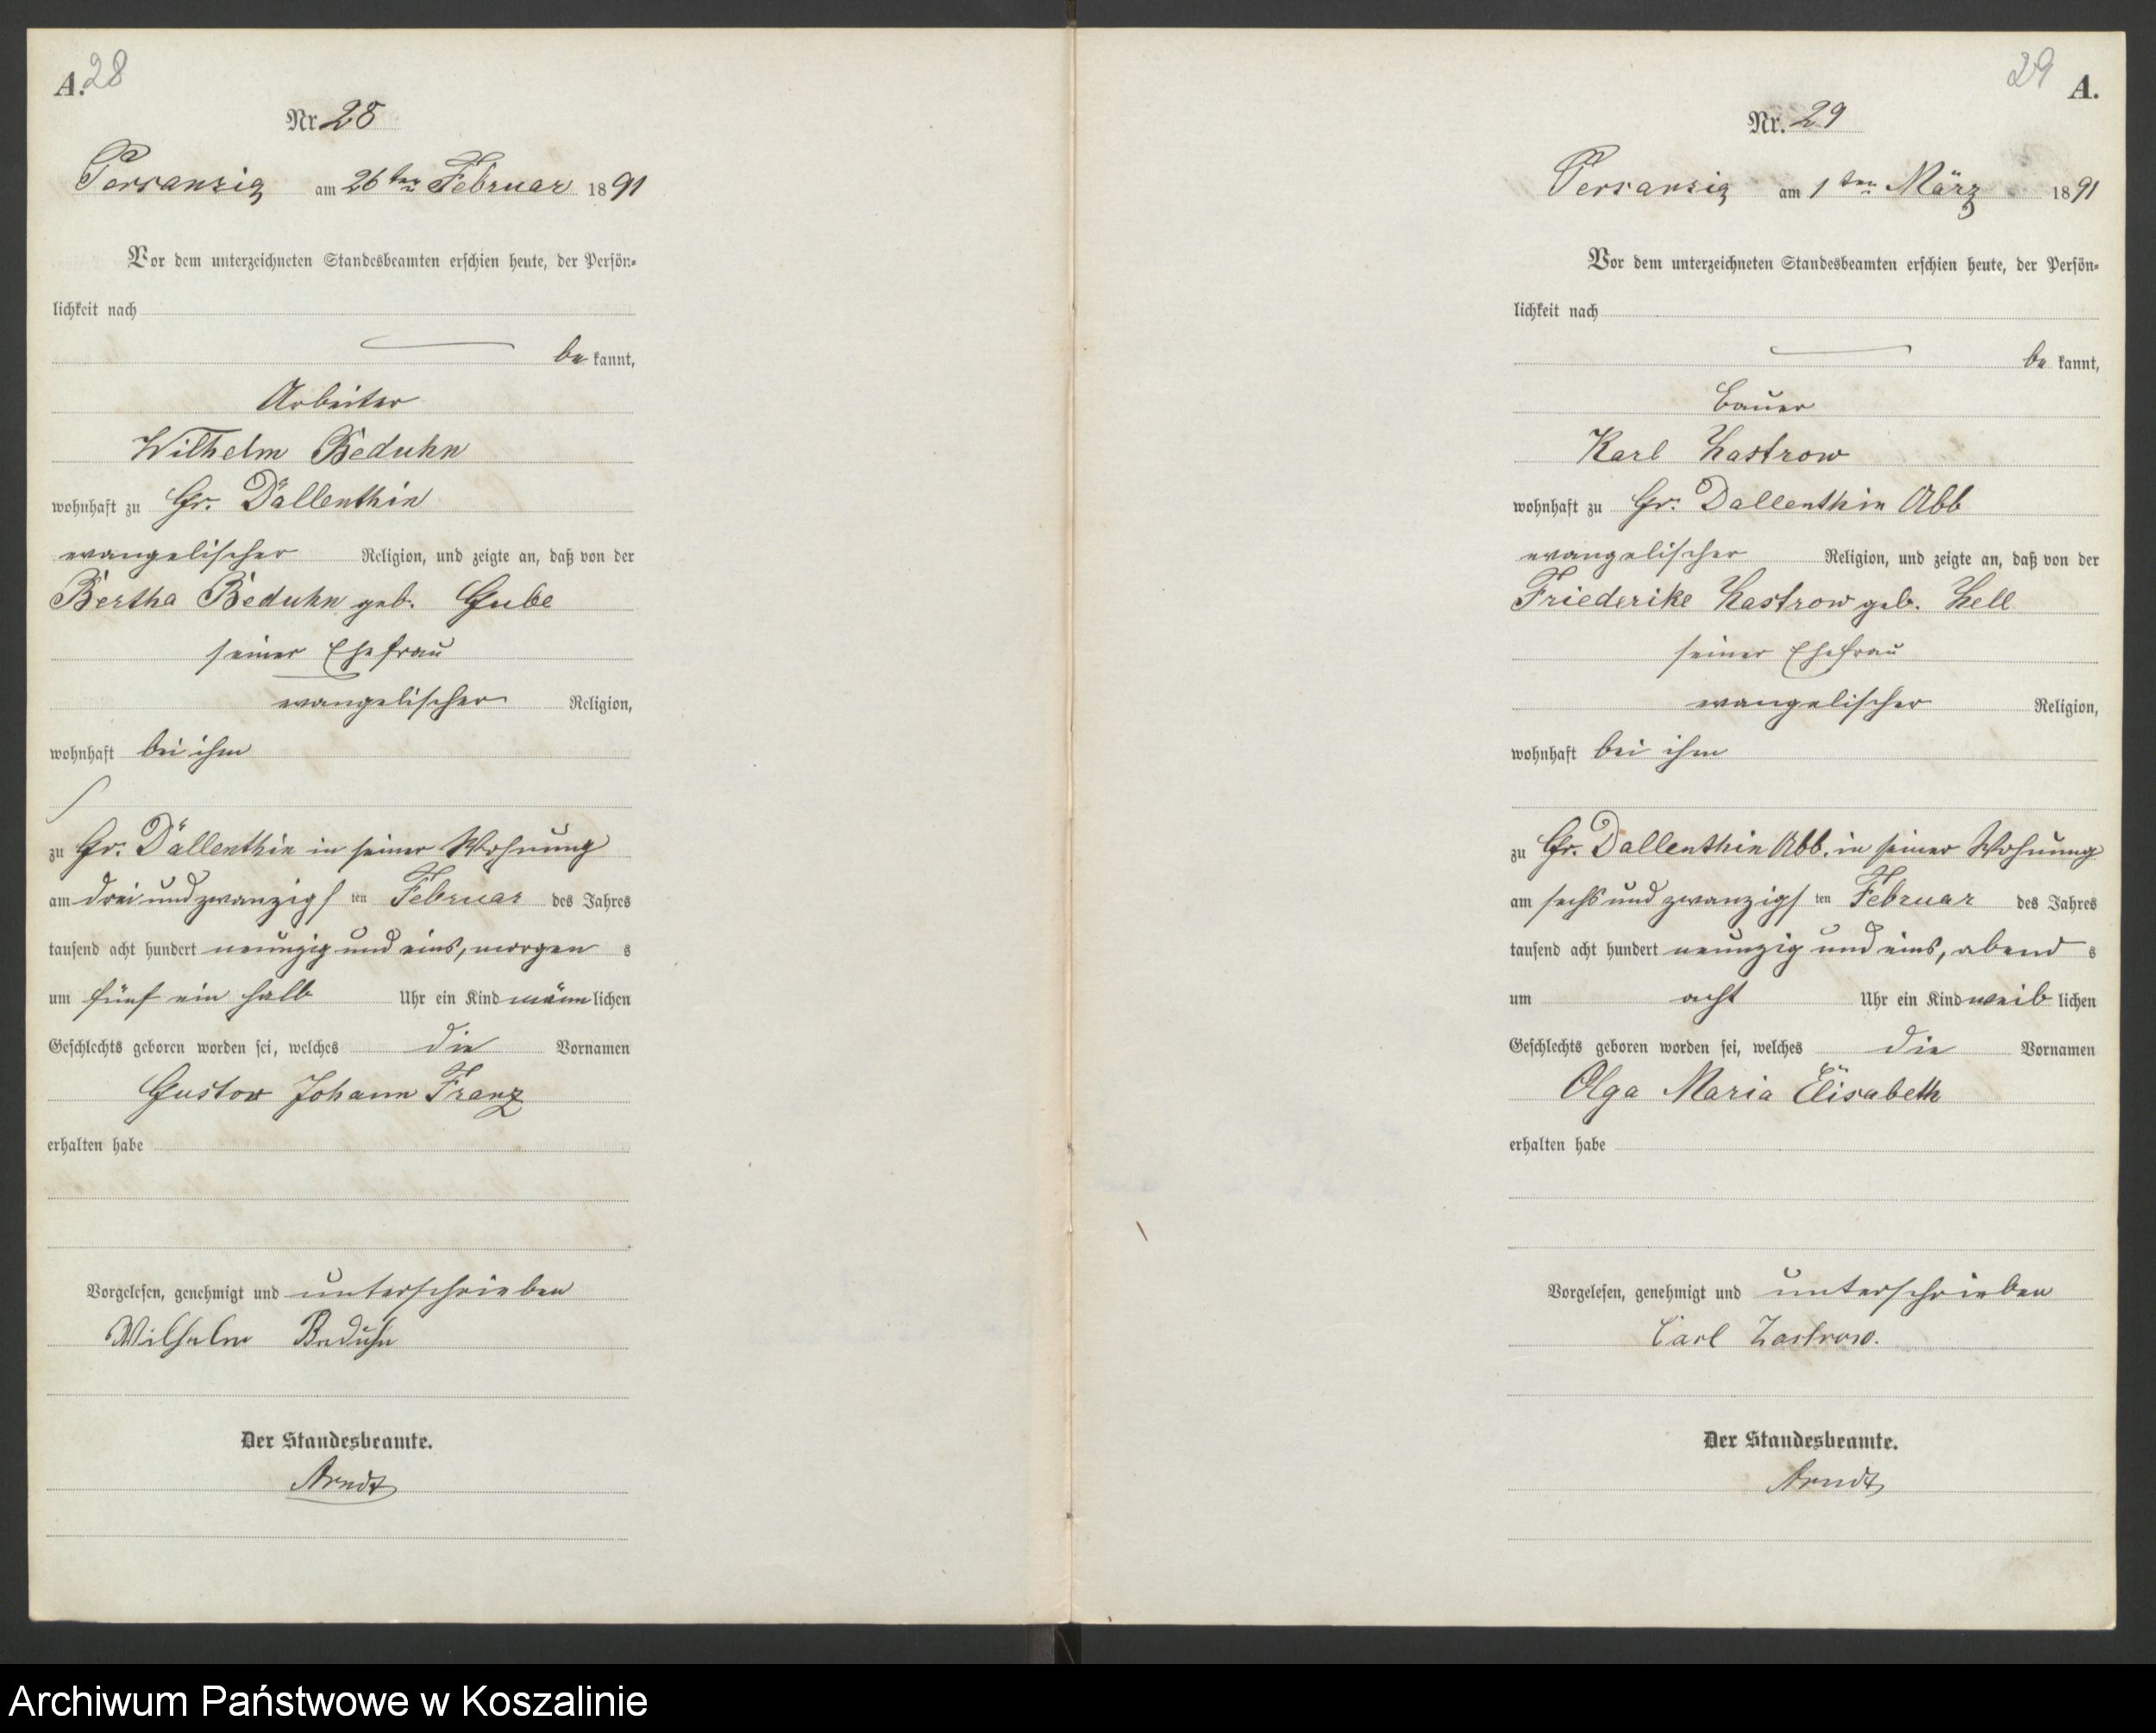 A. 28
Nr 28
Persanzig am 26ten Februar 1891
Vor dem unterzeichneten Standesbeamten erschien heute, der Persön-
lichkeit nach
bekannt,
Arbeiter
Wilhelm Beduhn
wohnhaft zu Gr. Dallenthin
evangelischer Religion, und zeigte an, daß von der
Bertha Beduhn geb. Gube
seiner Ehefrau
evangelischer Religion,
wohnhaft bei ihm
zu Gr. Dallenthin in seiner Wohnung
am drei und zwanzigsten Februar des Jahres
tausend acht hundert neunzig und eins, morgens
um fünf ein halb Uhr ein Kind männlichen
Geschlechts geboren worden sei, welches die Vornamen
Gustav Johann Franz
erhalten habe
Vorgelesen, genehmigt und unterschrieben
Wilhelm Beduhn
Der Standesbeamte.
Arndt
29 A.
Nr. 29
Persanzig am 1ten März 1891
Vor dem unterzeichneten Standesbeamten erschien heute, der Persön-
lichkeit nach
bekannt,
Bauer
Karl Zastrow
wohnhaft zu Gr. Dallenthin Abb
evangelischer Religion, und zeigte an, daß von der
Friederike Zastrow geb. Zell
seiner Ehefrau
evangelischer Religion,
wohnhaft bei ihm
zu Gr. Dallenthin Abb. in seiner Wohnung
am sechs und zwanzigsten Februar des Jahres
tausend acht hundert neunzig und eins, abends
um acht Uhr ein Kind weiblichen
Geschlechts geboren worden sei, welches die Vornamen
Olga Maria Elisabeth
erhalten habe
Vorgelesen, genehmigt und unterschrieben
Carl Zastrow.
Der Standesbeamte.
Arndt
Archiwum Państwowe w Koszalinie